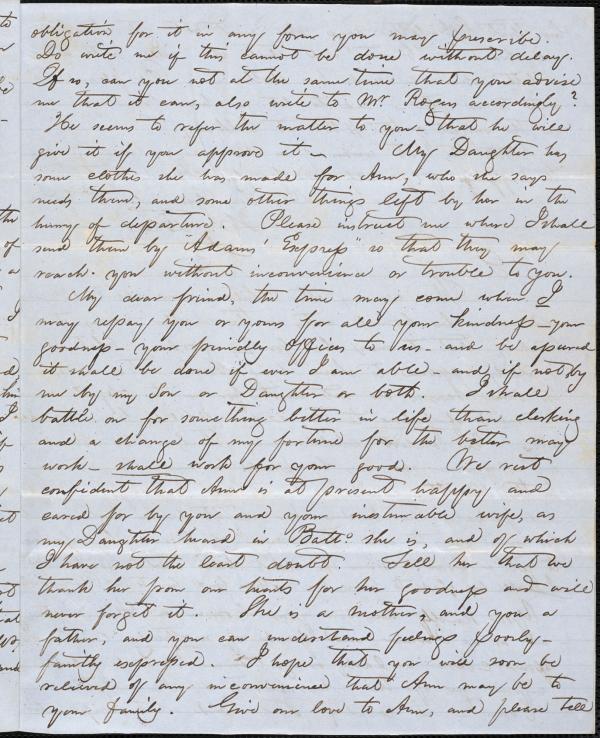 obligation for it in any form you may prescribe.
Do write me if this cannot be done without delay.
If so, can you not at the same time that you advise
me that it can, also write to Mr. Rogers accordingly?
He seems to refer the matter to you – that he will
give it if you approve it – My Daughter has
some clothes she has made for Ann, who she says
needs them, and some other things left by her in the
hurry of departure. Please instruct me where I shall
send them by "Adams' Express" so that they may
reach you without inconvenience or trouble to you.
My dear friend, the time may come when I
may repay you or yours for all your kindness – your
goodness – your friendly offices to us – and be assured
it shall be done if ever I am able – and if not by
me by my Son or Daughter or both. I shall
battle on for something better in life than clerking
and a change of my fortune for the better may
work – shall work for your good. We rest
confident that Ann is at present happy and
cared for by you and your inestimable wife, as
my Daughter heard in Balto. she is, and of which
I have not the least doubt. Tell her that we
thank her from our hearts for her goodness and will
never forget it. She is a mother, and you a
father, and you can understand feelings poorly –
faintly expressed. I hope that you will soon be
relieved of any inconvenience that Ann may be to
your family. Give our love to Ann, and please tell